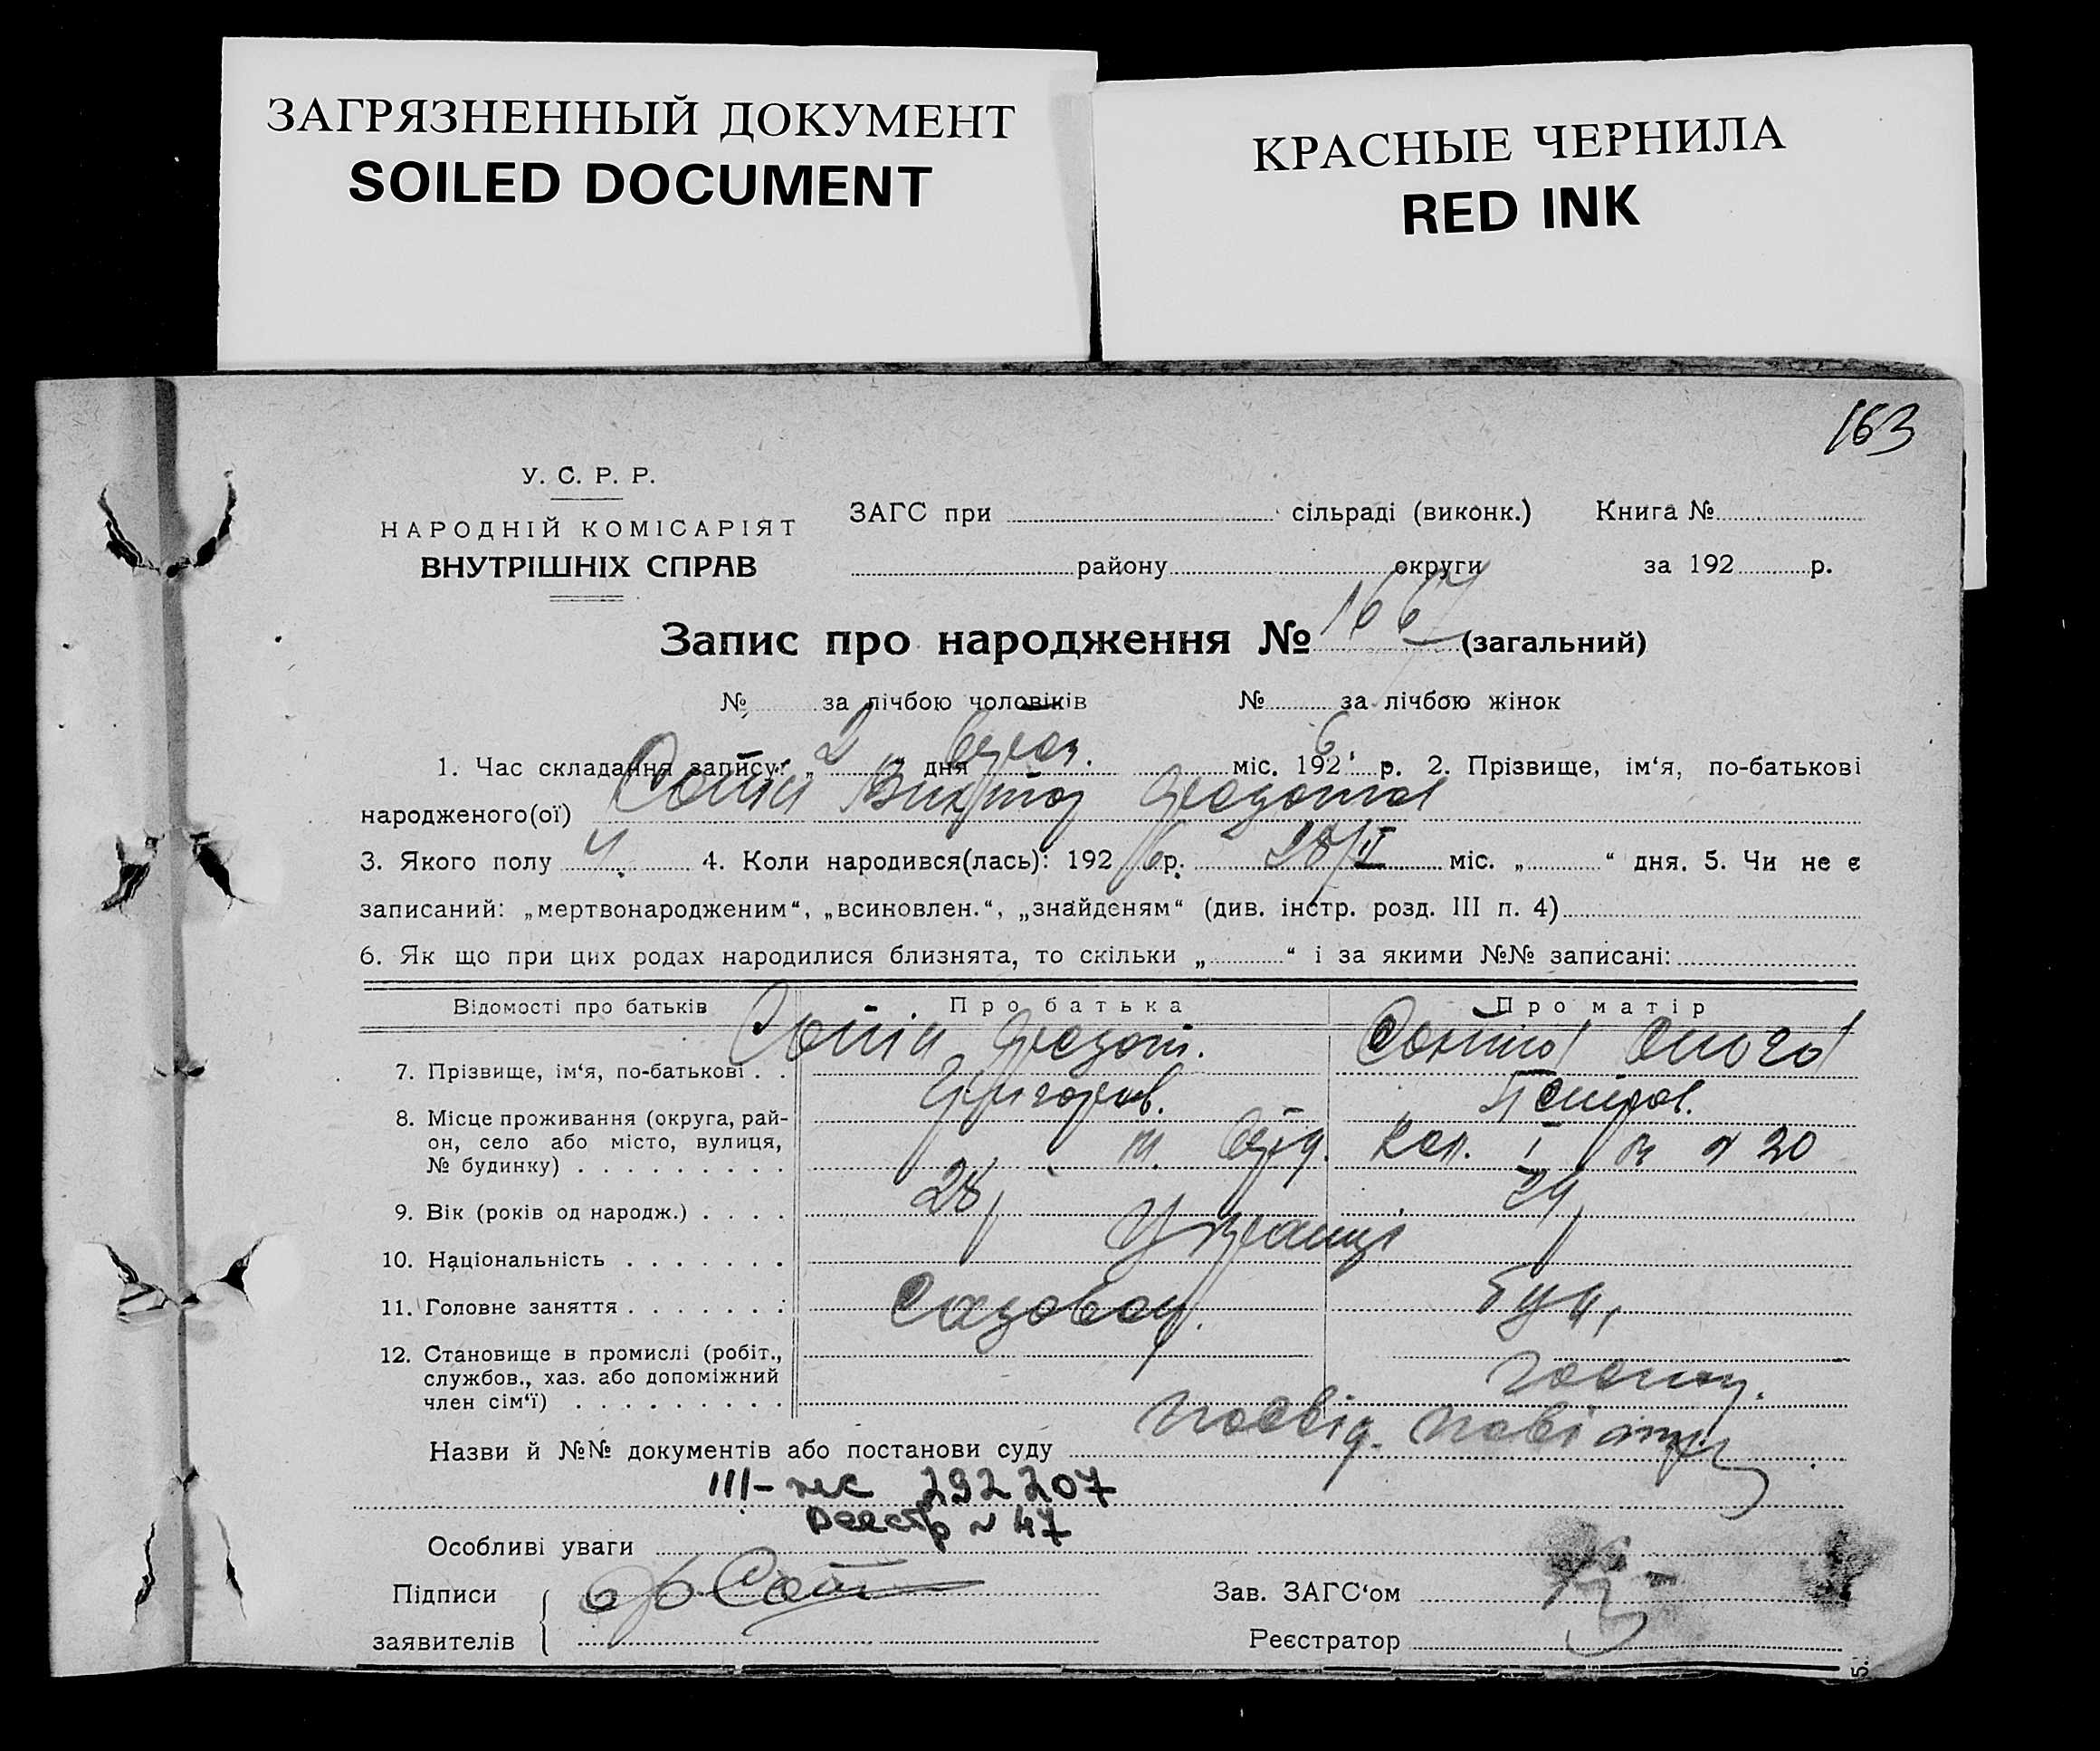 ЗАГРЯЗНЕННЫЙ ДОКУМЕНТ
SOILED DOCUMENT
КРАСНЫЕ ЧЕРНИЛА
RED INK
163
У. С. Р. Р.
НАРОДНІЙ КОМІСАРІЯТ
ВНУТРІШНІХ СПРАВ
ЗАГС при сільраді (виконк.) Книга №
району округи за 192 р.
Запис про народження № 1667 (загальний)
№ за лічбою чоловіків № за лічбою жінок
1. Час складання запису: „ 2 " дня міс. 1926 р. 2. Прізвище, ім'я, по-батькові
народженого(ої) Віктор
3. Якого полу Ч. 4. Коли народився(лась): 1926 р. 28/II міс. „ “ дня. 5. Чи не є
записаний: „мертвонародженим“, „всиновлен.“, „знайденям“ (див. інстр. розд. III п. 4)
6. Як що при цих родах народилися близнята, то скільки „ “ і за якими №№ записані:
Відомості про батьків Про батька Про матір
7. Прізвище, ім'я, по-батькові . .
8. Місце проживання (округа, рай-
он, село або місто, вулиця,
№ будинку) . . . . . . . . . № 20
9. Вік (років од народж.) . . . . 28 24
10. Національність . . . . . . . Українці
11. Головне заняття . . . . . . .
12. Становище в промислі (робіт.,
службов., хаз. або допоміжний
член сім'ї) . . . . . . . . .
Назви й №№ документів або постанови суду посвід.
III- 292207
Реестр № 47
Особливі уваги
Підписи
заявителів
Зав. ЗАГС'ом
Реєстратор
5.